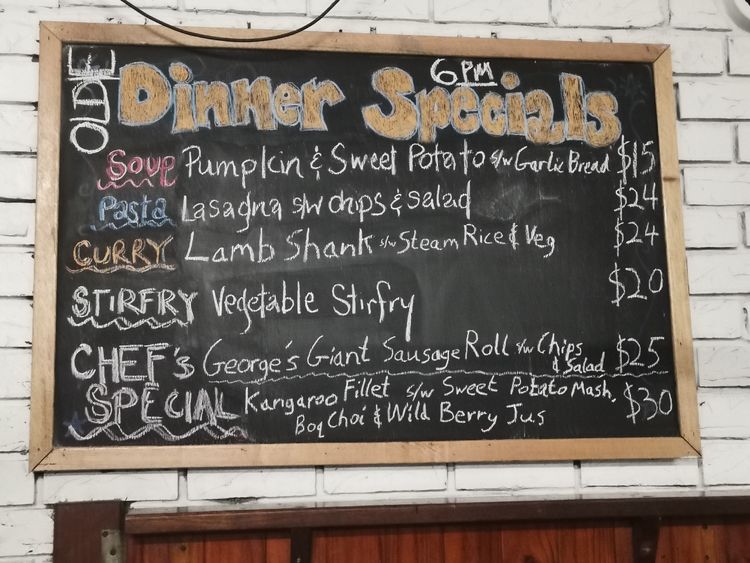 OLDE Dinner Specials 6PM
Soup Pumpkin & Sweet Potato s/w Garlic Bread $15
Pasta Lasagna s/w chips & salad $24
CURRY Lamb Shank s/w Steam Rice & Veg $24
STIRFRY Vegetable Stirfry $20
CHEF'S George's Giant Sausage Roll s/w Chips & Salad $25
SPECIAL Kangaroo Fillet s/w Sweet Potato Mash, $30
Boq Choi & Wild Berry Jus